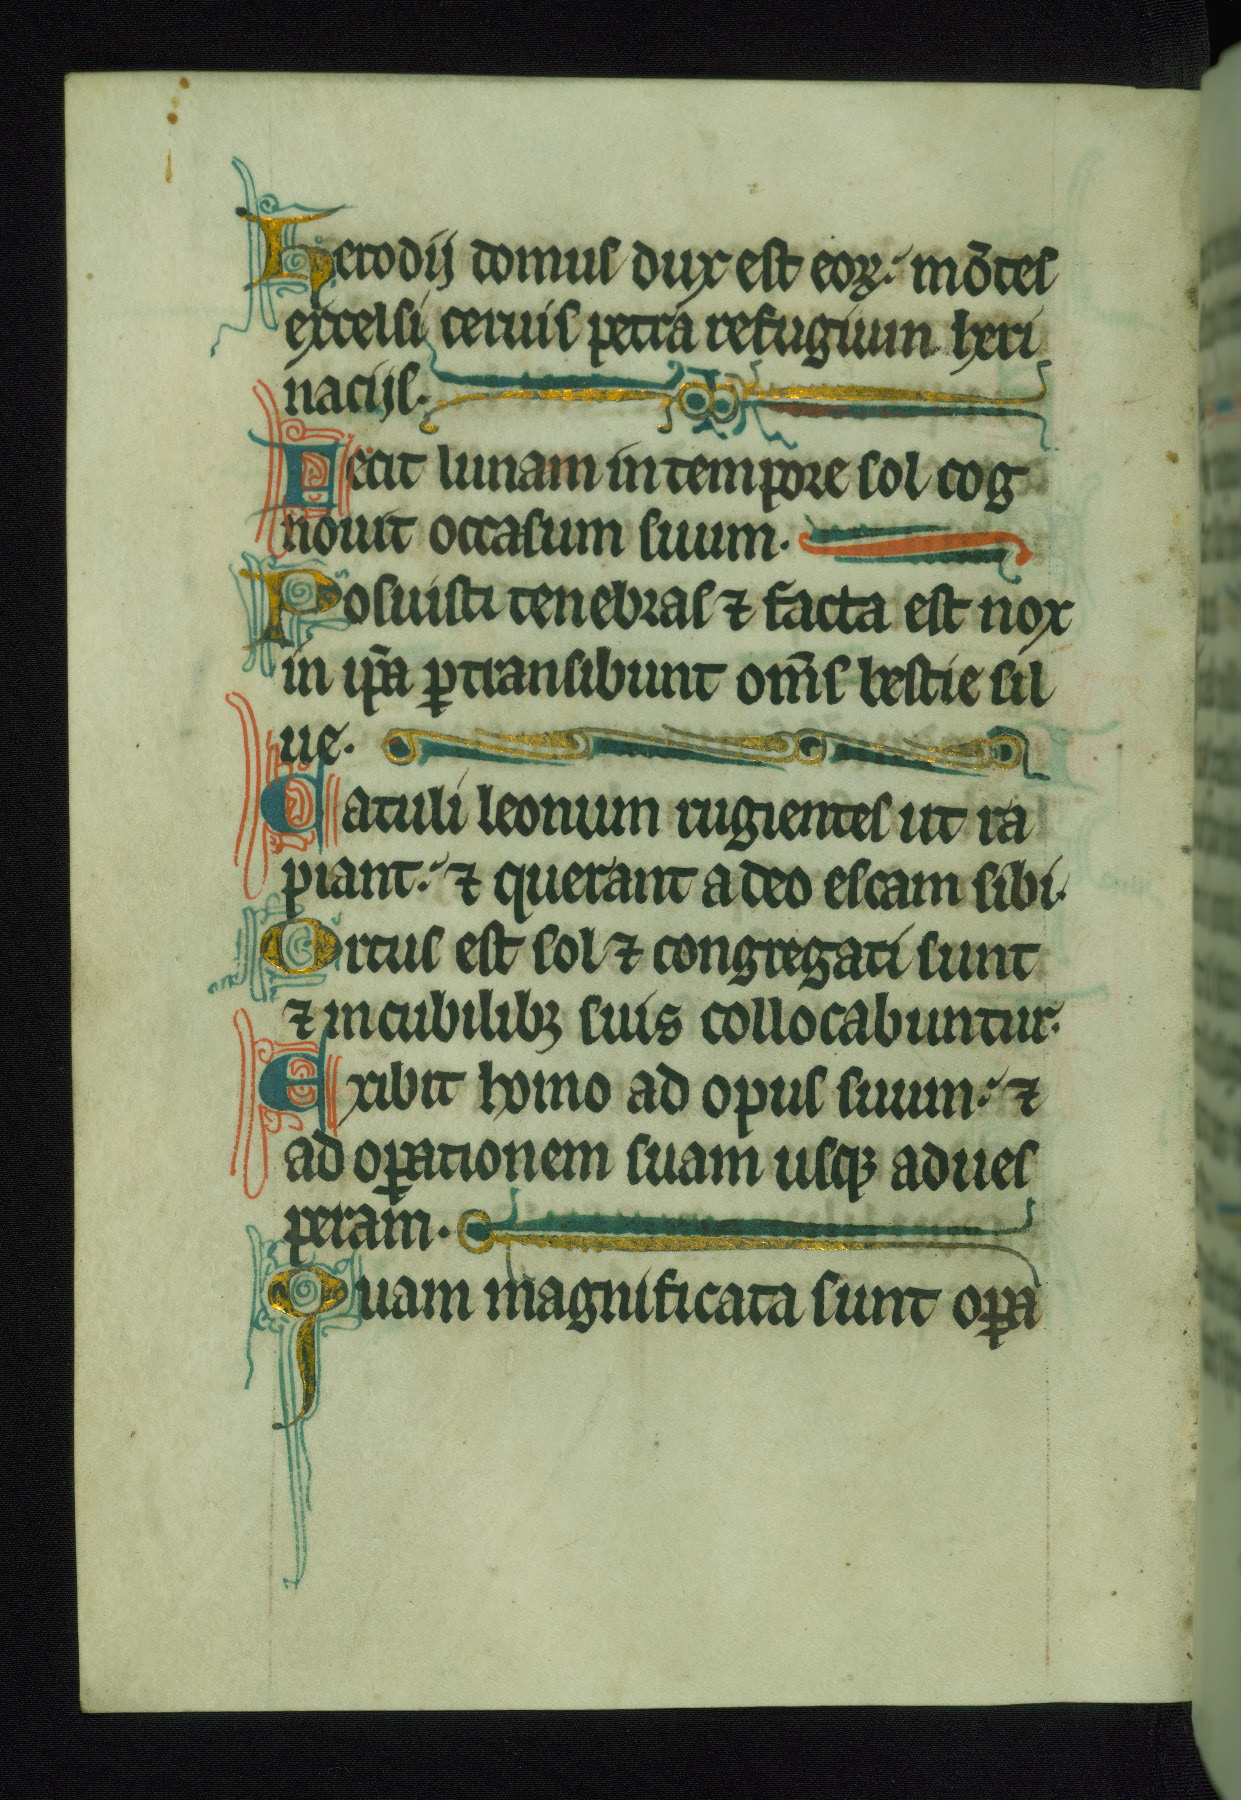 Herodij domus dux est eoꝝ: mo̅tes
excelsi ceruis petra refugium heri
nacijs.
Fecit lunam in tempore sol cog
nouit occasum suum.
Posuisti tenebras ⁊ facta est nox
in ip̅a ꝑtransibunt om̅s bestie sil
ue.
Catuli leonum rugientes ut ra
piant: ⁊ querant a deo escam sibi.
Ortus est sol ⁊ congregati sunt
⁊ in cubilibꝫ suis collocabuntur.
Exibit homo ad opus suum: ⁊
ad oꝑationem suam usqꝫ ad ues
peram.
Quam magnificata sunt oꝑa